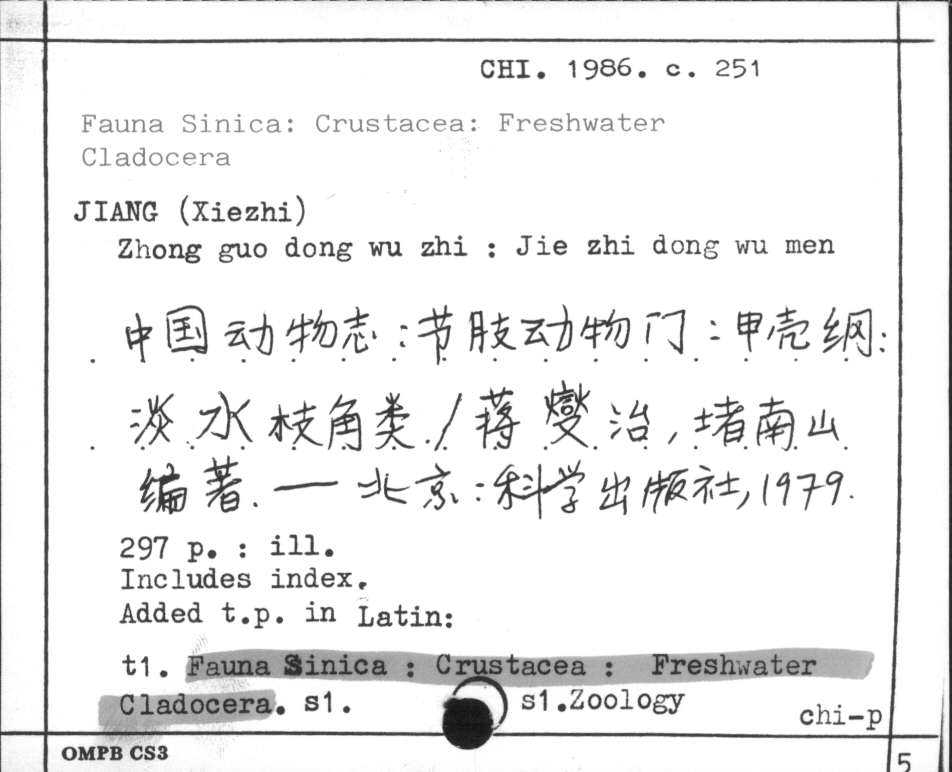 CHI. 1986. c. 251
Fauna Sinica: Crustacea: Freshwater
Cladocera
JIANG (Xiezhi)
Zhong guo dong wu zhi : Jie zhi dong wu men
中国动物志:节肢动物门:甲壳纲:
淡水枝角类/蒋燮治,堵南山
编著.—北京:科学出版社,1979.
297 p. : ill.
Includes index.
Added t.p. in Latin:
t1. Fauna Sinica : Crustacea : Freshwater
Cladocera. s1. s1.Zoology
chi-p
OMPB CS3
5